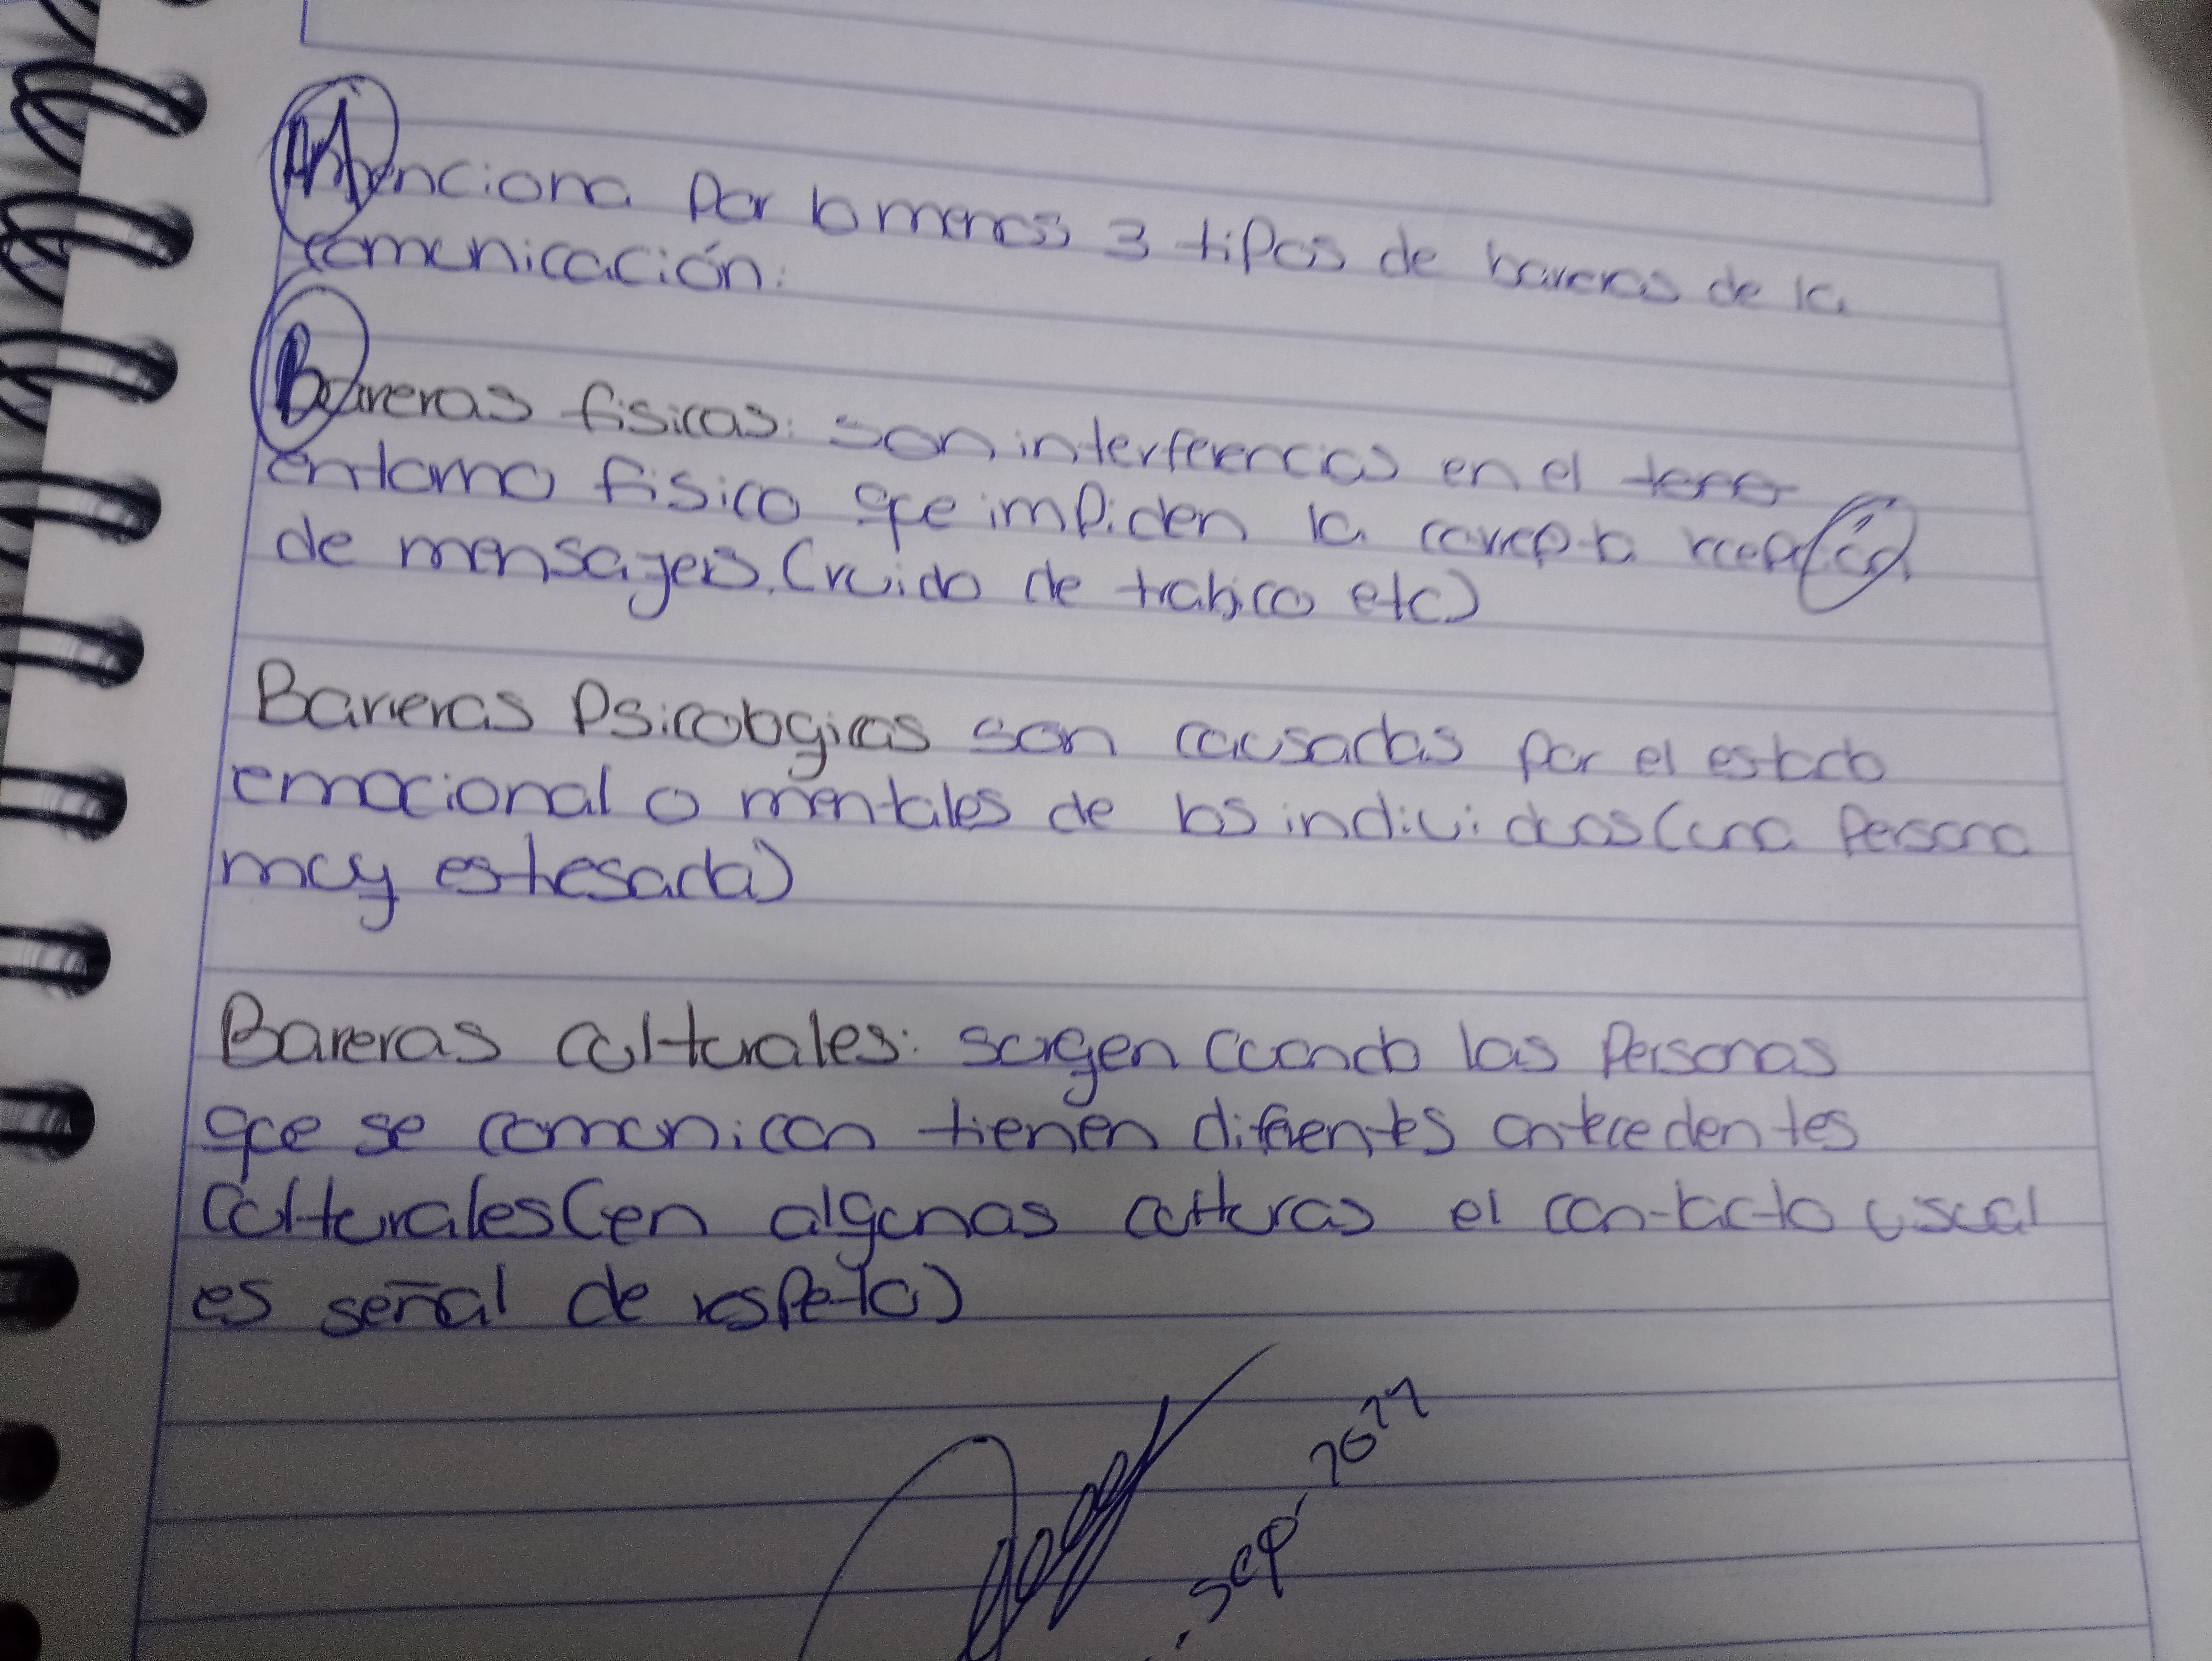 Menciona Por lo menos 3 tipos de bareras de la
comunicación:
Bareras fisicas: son interferencias en el
entorno fisico que impiden la correpta
de mensajes. (ruido de trafico etc)
Barreras Psicologicas son causadas por el estado
emocional o mentales de los individuos (una Persona
muy estresada)
Bareras culturales: surgen cuando las Personas
que se comunican tienen diferentes antecedentes
culturales (en algunas culturas el contacto visual
es señal de respeto)
sep